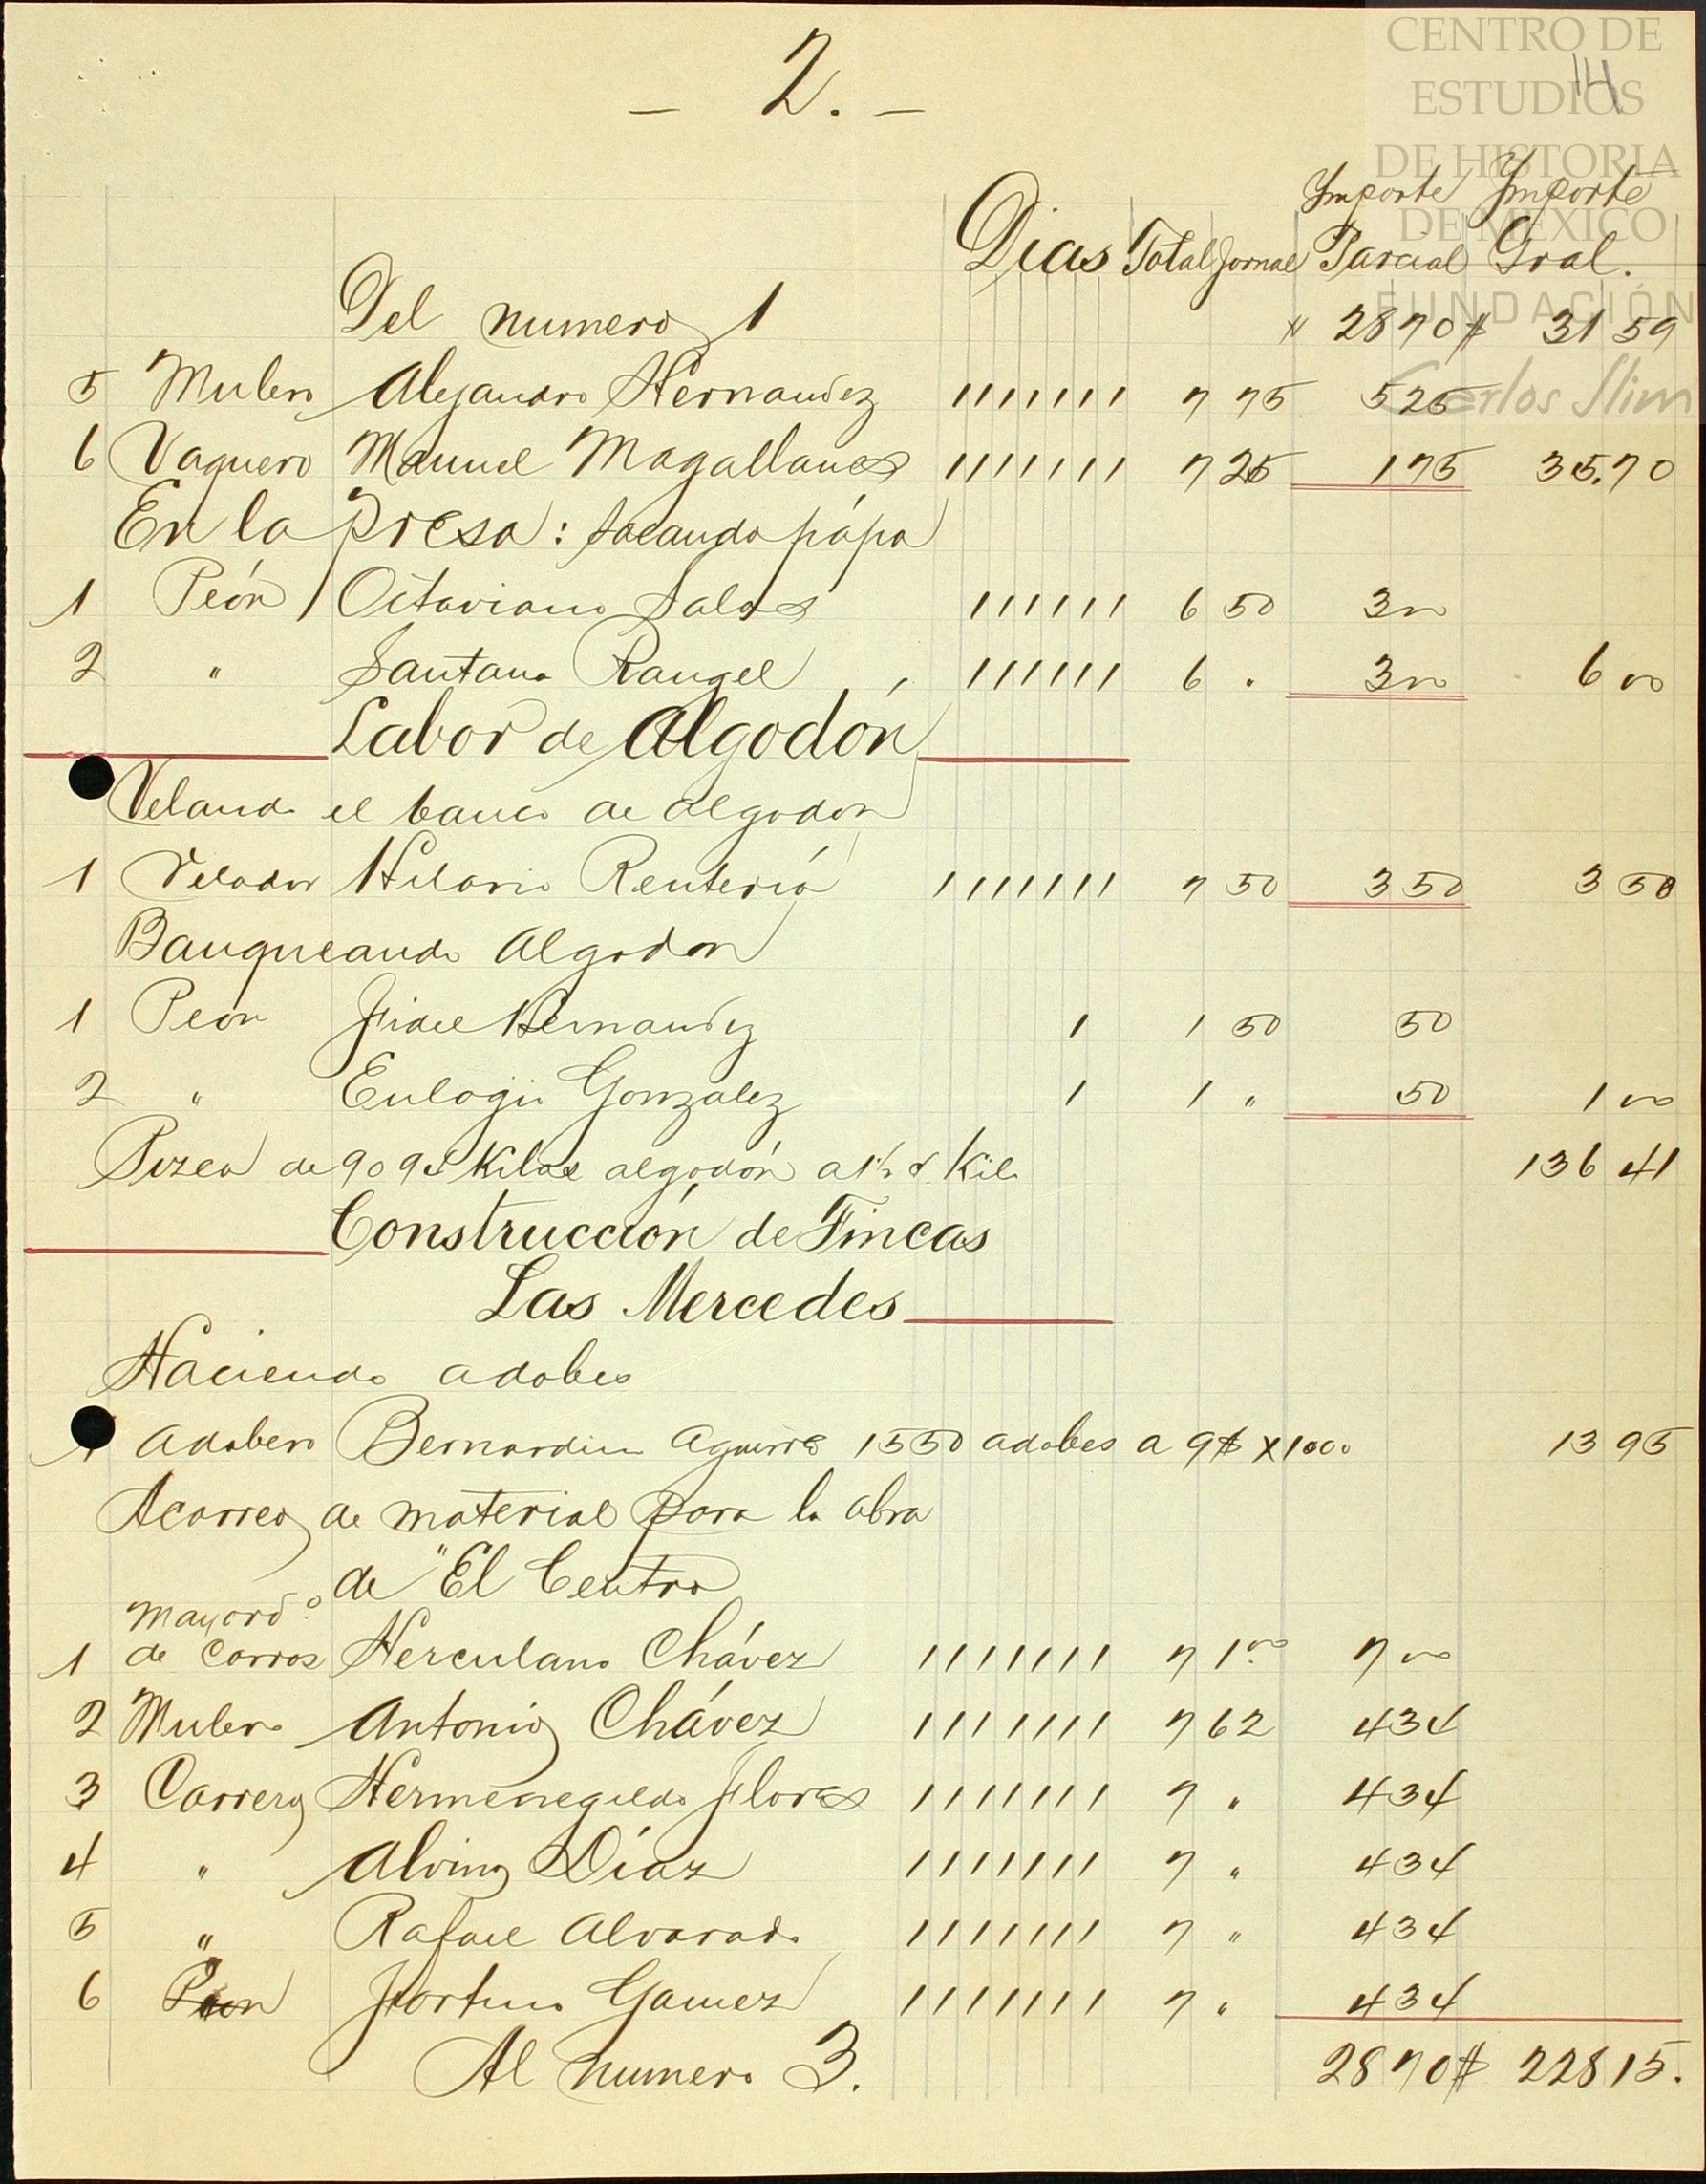 - 2. -
14
CENTRO DE
ESTUDIOS
DE HISTORIA
DE MEXICO
FUNDACIÓN
Carlos Slim
Importe Importe
Dias Total Jornal Parcial Gral.
Del numero 1 " 28 70 $ 31 59
5 Mulero Alejandro Hernandez 1111111 7 75 5 25
6 Vaquero Manuel Magallanes 1111111 7 25 1 75 35.70
En la Presa: sacando pápa
1 Peón Octaviano Salas 111111 6 50 3 00
2 " Santana Rangel 111111 6 " 3 00 6 00
Labor de Algodón
Velando el banco de algodon
1 Velador Hilario Rentería 1111111 7 50 3 50 3 50
Banqueando Algodon
1 Peon Fidel Hernandez 1 1 50 50
2 " Eulogio Gonzalez 1 1 " 50 1 00
Pizca de 9094 Kilos algodón a 1½ ¢ Kilo 136 41
Construcción de Fincas
Las Mercedes
Haciendo adobes
1 Adobero Bernardino Aguirre 1550 adobes a 9$ x 1000 13 95
Acarreo de material para la obra
de "El Centro
Mayordo
1 de Carros Herculano Chávez 1111111 7 1.00 7 00
2 Mulero Antonio Chávez 1111111 7 62 4 34
3 Carrero Hermenegildo Flores 1111111 7 " 4 34
4 " Alvino Díaz 1111111 7 " 4 34
5 " Rafael Alvarado 1111111 7 " 4 34
6 " Peon Fortino Gamez 1111111 7 " 4 34
Al numero 3. 28 70 $ 228 15.